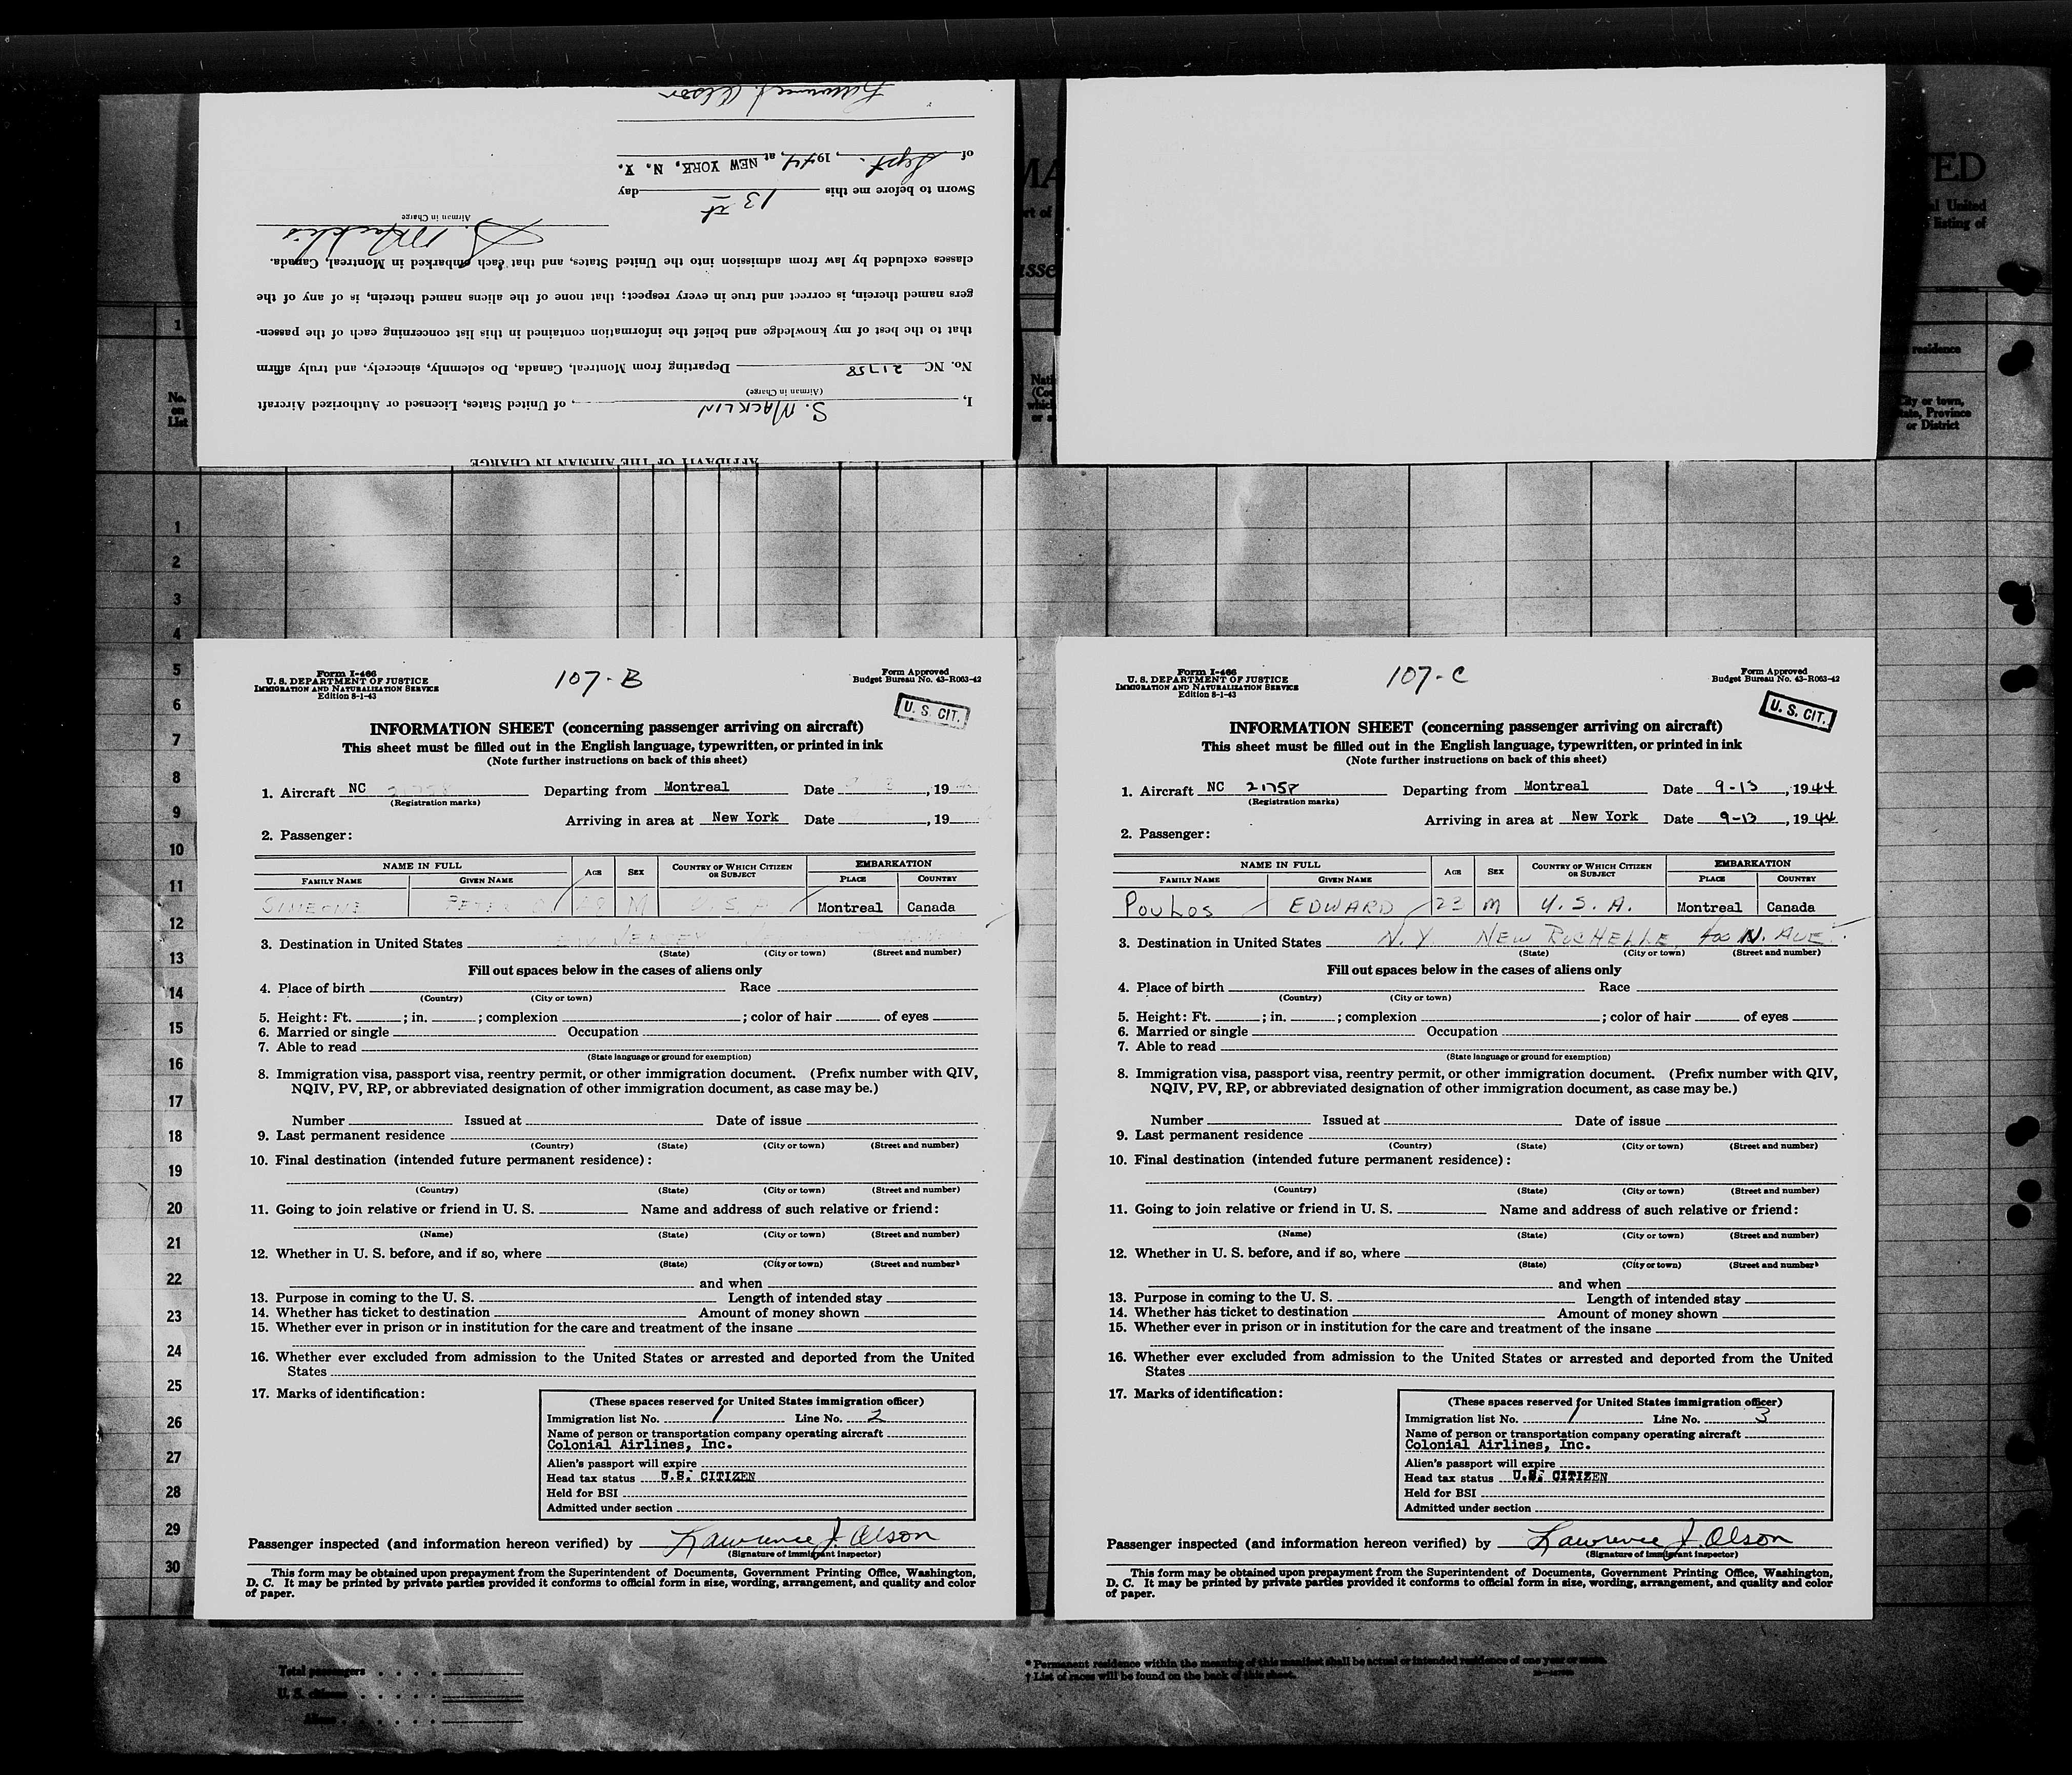 Sworn to before me this 13th day
of Sept., 1944, at NEW YORK, N. Y.
Airman in Charge
classes excluded by law from admission into the United States, and that each embarked in Montreal, Canada.
gers named therein, is correct and true in every respect; that none of the aliens named therein, is of any of the
that to the best of my knowledge and belief the information contained in this list concerning each of the passen-
No. NC 21758 Departing from Montreal, Canada, Do solemnly, sincerely, and truly affirm
(Airman in Charge)
I, S. MACKLIN, of United States, Licensed or Authorized Aircraft
AFFIDAVIT OF THE AIRMAN IN CHARGE
TED
al United
listing of
residence
City or town,
State, Province
or District
No.
on
List
1
1
2
3
4
5
6
7
8
9
10
11
12
13
14
15
16
17
18
19
20
21
22
23
24
25
26
27
28
29
30
Form I-466
U. S. DEPARTMENT OF JUSTICE
IMMIGRATION AND NATURALIZATION SERVICE
Edition 8-1-43
107-B
Form Approved
Budget Bureau No. 43-R063-42
U. S. CIT.
INFORMATION SHEET (concerning passenger arriving on aircraft)
This sheet must be filled out in the English language, typewritten, or printed in ink
(Note further instructions on back of this sheet)
1. Aircraft NC Departing from Montreal Date , 19
(Registration marks)
Arriving in area at New York Date , 19
2. Passenger:
NAME IN FULL AGE SEX COUNTRY OF WHICH CITIZEN OR SUBJECT EMBARKATION
FAMILY NAME GIVEN NAME PLACE COUNTRY
SIMEONE PETER M U.S.A Montreal Canada
3. Destination in United States JERSEY
(State) (City or town) (Street and number)
Fill out spaces below in the cases of aliens only
4. Place of birth Race
(Country) (City or town)
5. Height: Ft. ; in. ; complexion ; color of hair of eyes
6. Married or single Occupation
7. Able to read
(State language or ground for exemption)
8. Immigration visa, passport visa, reentry permit, or other immigration document. (Prefix number with QIV,
NQIV, PV, RP, or abbreviated designation of other immigration document, as case may be.)
Number Issued at Date of issue
9. Last permanent residence
(Country) (State) (City or town) (Street and number)
10. Final destination (intended future permanent residence):
(Country) (State) (City or town) (Street and number)
11. Going to join relative or friend in U. S. Name and address of such relative or friend:
(Name) (State) (City or town) (Street and number)
12. Whether in U. S. before, and if so, where
(State) (City or town) (Street and number)
and when
13. Purpose in coming to the U. S. Length of intended stay
14. Whether has ticket to destination Amount of money shown
15. Whether ever in prison or in institution for the care and treatment of the insane
16. Whether ever excluded from admission to the United States or arrested and deported from the United
States
17. Marks of identification:
(These spaces reserved for United States immigration officer)
Immigration list No. 1 Line No. 2
Name of person or transportation company operating aircraft
Colonial Airlines, Inc.
Alien's passport will expire
Head tax status U.S. CITIZEN
Held for BSI
Admitted under section
Passenger inspected (and information hereon verified) by Lawrence J. Olson
(Signature of immigrant inspector)
This form may be obtained upon prepayment from the Superintendent of Documents, Government Printing Office, Washington,
D. C. It may be printed by private parties provided it conforms to official form in size, wording, arrangement, and quality and color
of paper.
Form I-466
U. S. DEPARTMENT OF JUSTICE
IMMIGRATION AND NATURALIZATION SERVICE
Edition 8-1-43
107-C
Form Approved
Budget Bureau No. 43-R063-42
U. S. CIT.
INFORMATION SHEET (concerning passenger arriving on aircraft)
This sheet must be filled out in the English language, typewritten, or printed in ink
(Note further instructions on back of this sheet)
1. Aircraft NC 21758 Departing from Montreal Date 9-13, 1944
(Registration marks)
Arriving in area at New York Date 9-13, 1944
2. Passenger:
NAME IN FULL AGE SEX COUNTRY OF WHICH CITIZEN OR SUBJECT EMBARKATION
FAMILY NAME GIVEN NAME PLACE COUNTRY
POULOS EDWARD 23 M U.S.A. Montreal Canada
3. Destination in United States N.Y. NEW ROCHELLE 400 N. AVE
(State) (City or town) (Street and number)
Fill out spaces below in the cases of aliens only
4. Place of birth Race
(Country) (City or town)
5. Height: Ft. ; in. ; complexion ; color of hair of eyes
6. Married or single Occupation
7. Able to read
(State language or ground for exemption)
8. Immigration visa, passport visa, reentry permit, or other immigration document. (Prefix number with QIV,
NQIV, PV, RP, or abbreviated designation of other immigration document, as case may be.)
Number Issued at Date of issue
9. Last permanent residence
(Country) (State) (City or town) (Street and number)
10. Final destination (intended future permanent residence):
(Country) (State) (City or town) (Street and number)
11. Going to join relative or friend in U. S. Name and address of such relative or friend:
(Name) (State) (City or town) (Street and number)
12. Whether in U. S. before, and if so, where
(State) (City or town) (Street and number)
and when
13. Purpose in coming to the U. S. Length of intended stay
14. Whether has ticket to destination Amount of money shown
15. Whether ever in prison or in institution for the care and treatment of the insane
16. Whether ever excluded from admission to the United States or arrested and deported from the United
States
17. Marks of identification:
(These spaces reserved for United States immigration officer)
Immigration list No. 1 Line No. 3
Name of person or transportation company operating aircraft
Colonial Airlines, Inc.
Alien's passport will expire
Head tax status U.S. CITIZEN
Held for BSI
Admitted under section
Passenger inspected (and information hereon verified) by Lawrence J. Olson
(Signature of immigrant inspector)
This form may be obtained upon prepayment from the Superintendent of Documents, Government Printing Office, Washington,
D. C. It may be printed by private parties provided it conforms to official form in size, wording, arrangement, and quality and color
of paper.
Total passengers
U. S. citizens
Aliens
* Permanent residence within the meaning of this manifest shall be actual or intended residence of one year or more.
† List of races will be found on the back of this sheet.